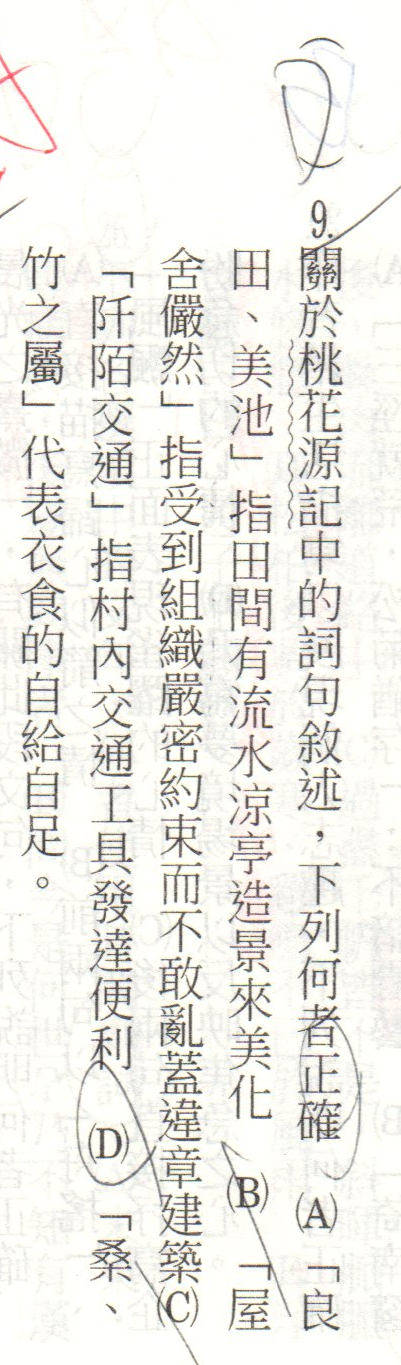 (D)9.關於桃花源記中的詞句敘述，下列何者正確 (A)「良
田、美池」指田間有流水涼亭造景來美化 (B)「屋
舍儼然」指受到組織嚴密約束而不敢亂蓋違章建築(C)
「阡陌交通」指村內交通工具發達便利 (D)「桑、
竹之屬」代表衣食的自給自足。